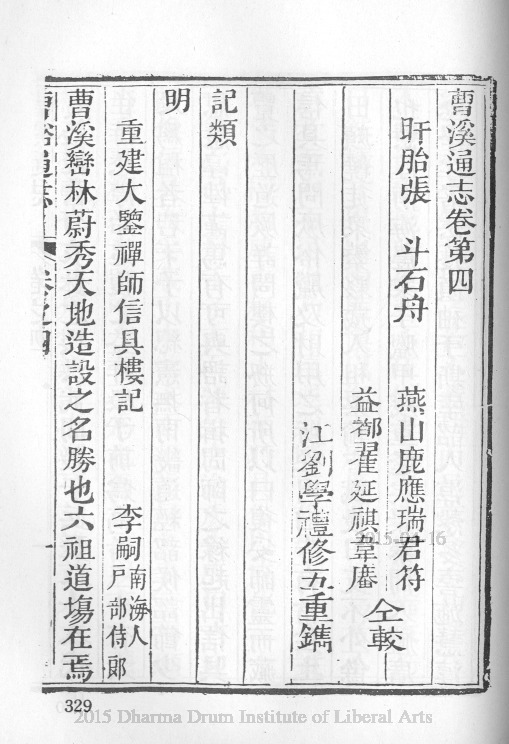 曹溪通志卷第四
盱眙張　斗石舟
燕山鹿應瑞君符
益都翟延祺韋廬
仝較
江劉學禮修五重鐫
記類
明
重建大鑒禪師信具樓記
李嗣南海人戶部侍郎
曹溪巒林蔚秀天地造設之名勝也六祖道場在焉
曹谿通志
卷之四
一
329
2015-04-16
2015 Dharma Drum Institute of Liberal Arts